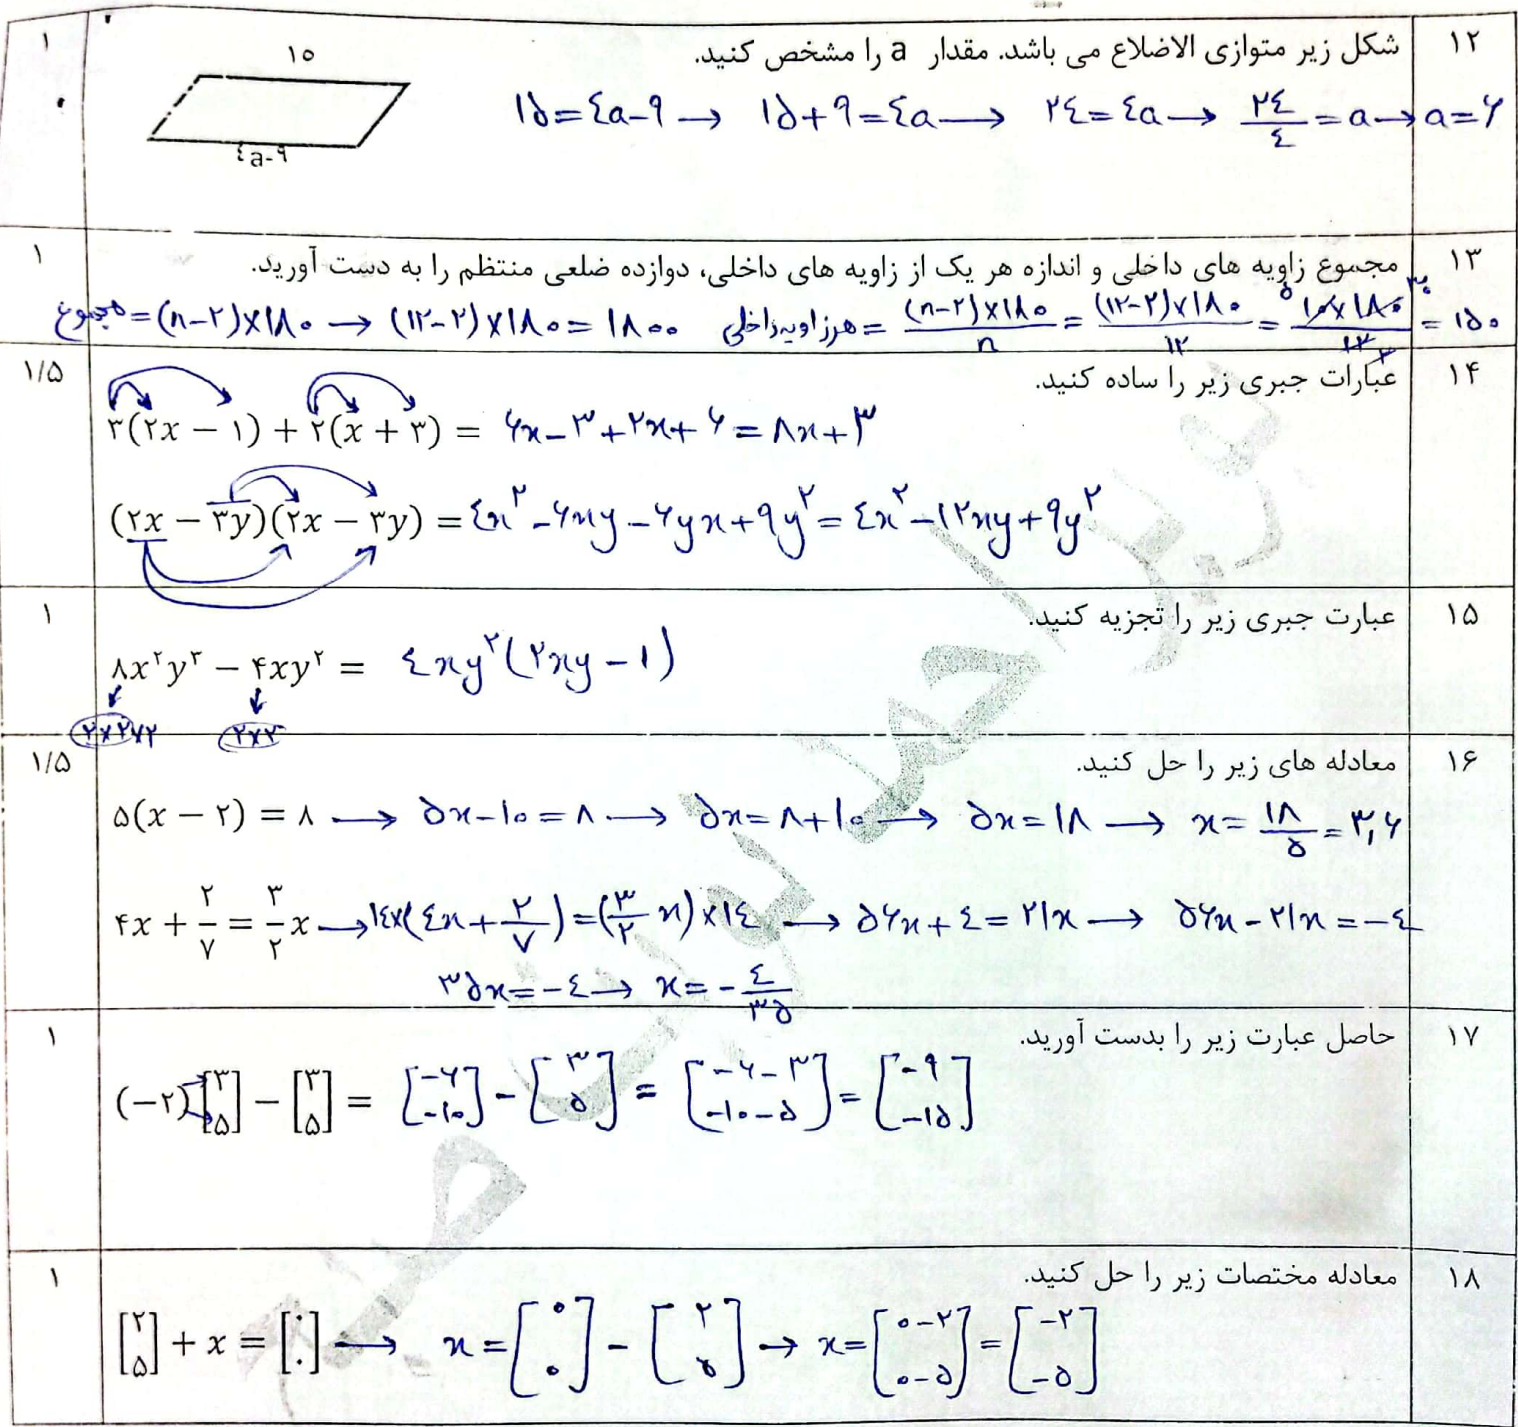 ۱۲ شکل زیر متوازی الاضلاع می باشد. مقدار a را مشخص کنید. ۱
۱۵
۴a-۹
۱۵=۴a-۹ → ۱۵+۹=۴a → ۲۴=۴a → ۲۴/۴=a → a=۶
۱۳ مجموع زاویه های داخلی و اندازه هر یک از زاویه های داخلی، دوازده ضلعی منتظم را به دست آورید. ۱
مجموع=(n-۲)×۱۸۰ → (۱۲-۲)×۱۸۰=۱۸۰۰ هرزاویه داخلی=(n-۲)×۱۸۰/n=(۱۲-۲)×۱۸۰/۱۲=۱۰×۱۸۰/۱۲=۱۵۰
۱۴ عبارات جبری زیر را ساده کنید. ۱/۵
۳(۲x − ۱) + ۲(x + ۳) = ۶x-۳+۲x+۶=۸x+۳
(۲x − ۳y)(۲x − ۳y) = ۴x²-۶xy-۶yx+۹y²=۴x²-۱۲xy+۹y²
۱۵ عبارت جبری زیر را تجزیه کنید. ۱
۸x²y³ − ۴xy² = ۴xy²(۲xy-۱)
۲×۲×۲ ۲×۲
۱۶ معادله های زیر را حل کنید. ۱/۵
۵(x − ۲) = ۸ → ۵x-۱۰=۸ → ۵x=۸+۱۰ → ۵x=۱۸ → x=۱۸/۵=۳,۶
۴x + ۲/۷ = ۳/۲ x → ۱۴×(۴x+۲/۷)=(۳/۲ x)×۱۴ → ۵۶x+۴=۲۱x → ۵۶x-۲۱x=-۴
۳۵x=-۴ → x=-۴/۳۵
۱۷ حاصل عبارت زیر را بدست آورید. ۱
(−۲)[۳ ۵] − [۳ ۵] = [-۶ -۱۰]-[۳ ۵]=[-۶-۳ -۱۰-۵]=[-۹ -۱۵]
۱۸ معادله مختصات زیر را حل کنید. ۱
[۲ ۵] + x = [۰ ۰] → x=[۰ ۰]-[۲ ۵] → x=[۰-۲ ۰-۵]=[-۲ -۵]